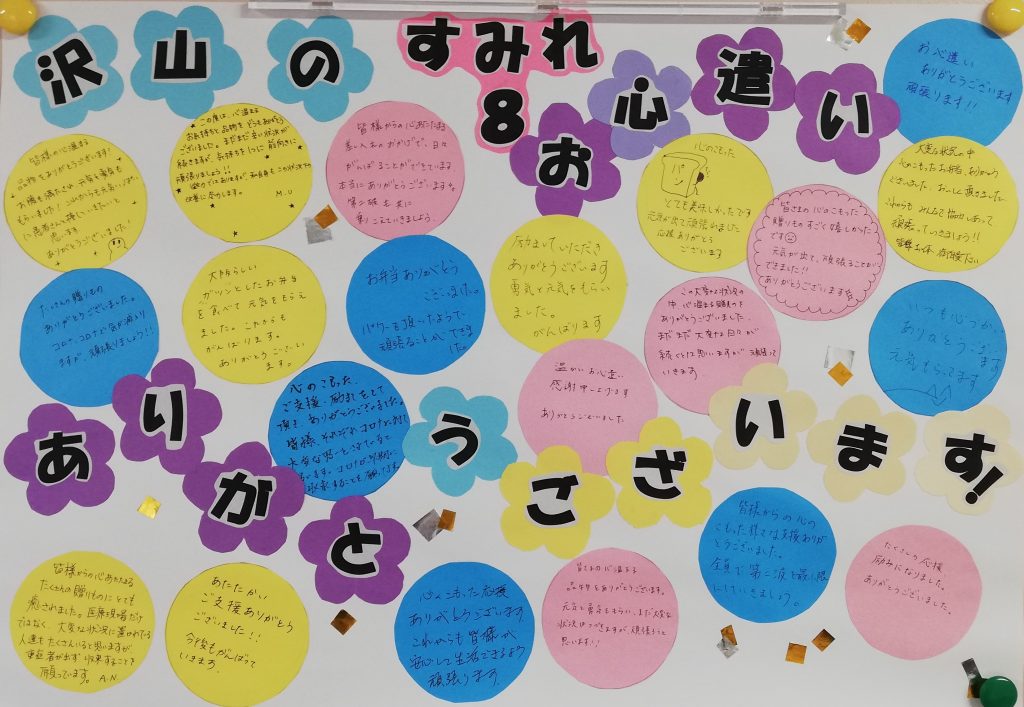 沢山の
すみれ
8
お心遣い
ありがとうございます!
お心遣い
ありがとうございます
頑張ります!!
皆様の心温まる
品物をありがとうございます!
お腹を満たせ
ありがとうございました!
この度は、心温まる
お気持ちと品物を
ございました。
頑張りましょう!!
M.U
皆様からの心あたたまる
がんばることができています
本当にありがとうございます。
第二波も共に
乗りこえていきましょう。
心のこもった
パン
とても美味しかったです
元気が出て頑張れました
応援ありがとう
ございます
皆さまの心のこもった
贈りものすごく嬉しかった
です
元気が出て、頑張ることが
できました!!
ありがとうございます
大変な状況の中
心のこもったお弁当、ありがとう
ございました。おいしく頂きました
これからもみんなで協力しあって
頑張っていきましょう!!
たくさんの贈りもの
ありがとうございました。
コロナ、コロナで気が滅入り
ますが、頑張りましょう!!
大阪らしい
ガツンとしたお弁当
を食べて元気をもらえ
ました。これからも
がんばります。
ありがとうござい
ます。
お弁当ありがとう
ございました。
パワーを頂いたようで
頑張ることができまし
た。
励ましていただき
ありがとうございます
勇気と元気をもらい
ました。
がんばります
この大変な状況の
中、心温まる
ありがとうございました。
まだまだ大変な日々が
続くとは思いますが頑張って
いきます
いつも心づかい
ありがとうございます
元気もらってます
温かいお心遣い
感謝申し上げます
ありがとうございました
心のこもった
ご支援・励ましをして
頂き、ありがとうございました。
皆様、それぞれコロナに対して
皆様からの心の
こもった様々な支援ありが
とうございました。
全員で第二波を最小限
にしていきましょう。
たくさんの応援
励みになりました。
ありがとうございました。
皆様からの心あたたまる
たくさんの贈りものにとても
癒されました。医療現場だけ
ではなく、大変な状況に置かれている
人達もたくさんいると思いますが
重症者が出ず収束することを
願っています。 A.N
あたたかい
ご支援ありがとう
ございました!!
今後もがんばって
いきます
心のこもった応援
ありがとうございます
これからも皆様が
安心して生活できるよう
頑張ります
皆さまの心温まる
品々をありがとうございます。
元気と勇気をもらい、まだ大変な
状況はつづきますが、頑張ろうと
思います!!